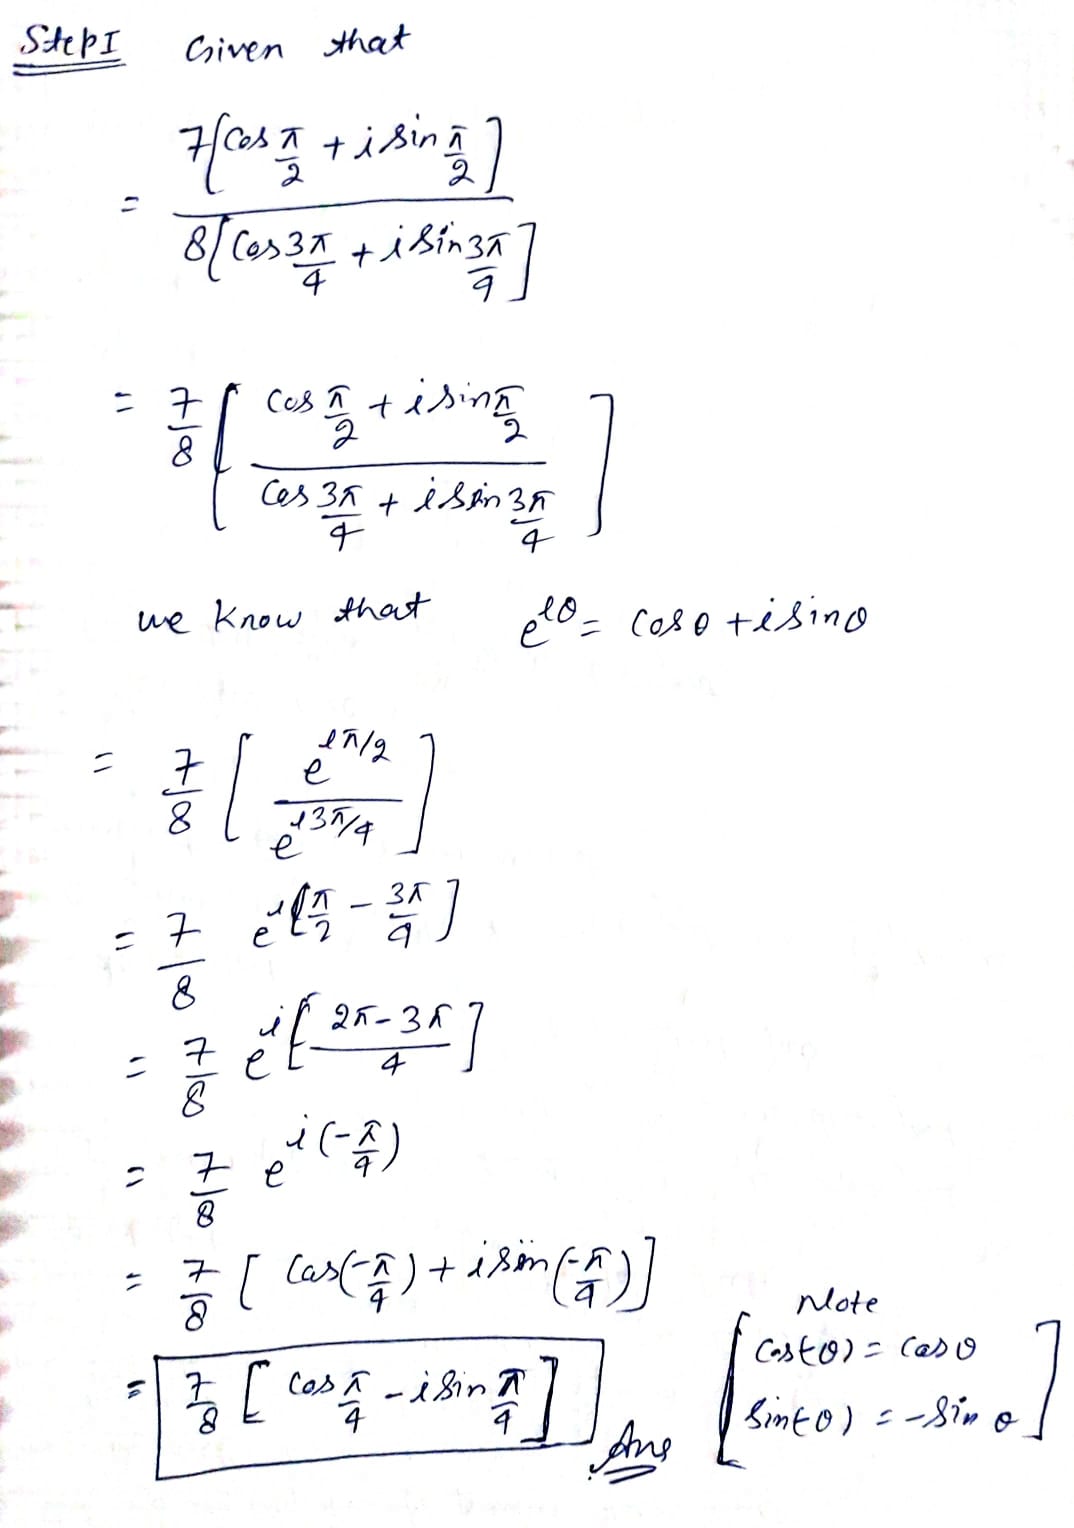 Step I Given that
= 7[cos π/2 + i sin π/2] / 8[cos 3π/4 + i sin 3π/4]
= 7/8 [ (cos π/2 + i sin π/2) / (cos 3π/4 + i sin 3π/4) ]
we know that e^{iθ} = cosθ + i sinθ
= 7/8 [ e^{iπ/2} / e^{i3π/4} ]
= 7/8 e^{i[π/2 - 3π/4]}
= 7/8 e^{i[(2π - 3π)/4]}
= 7/8 e^{i(-π/4)}
= 7/8 [ cos(-π/4) + i sin(-π/4) ]
= 7/8 [ cos π/4 - i sin π/4 ] Ans
Note
[ cos(-θ) = cosθ
sin(-θ) = -sinθ ]